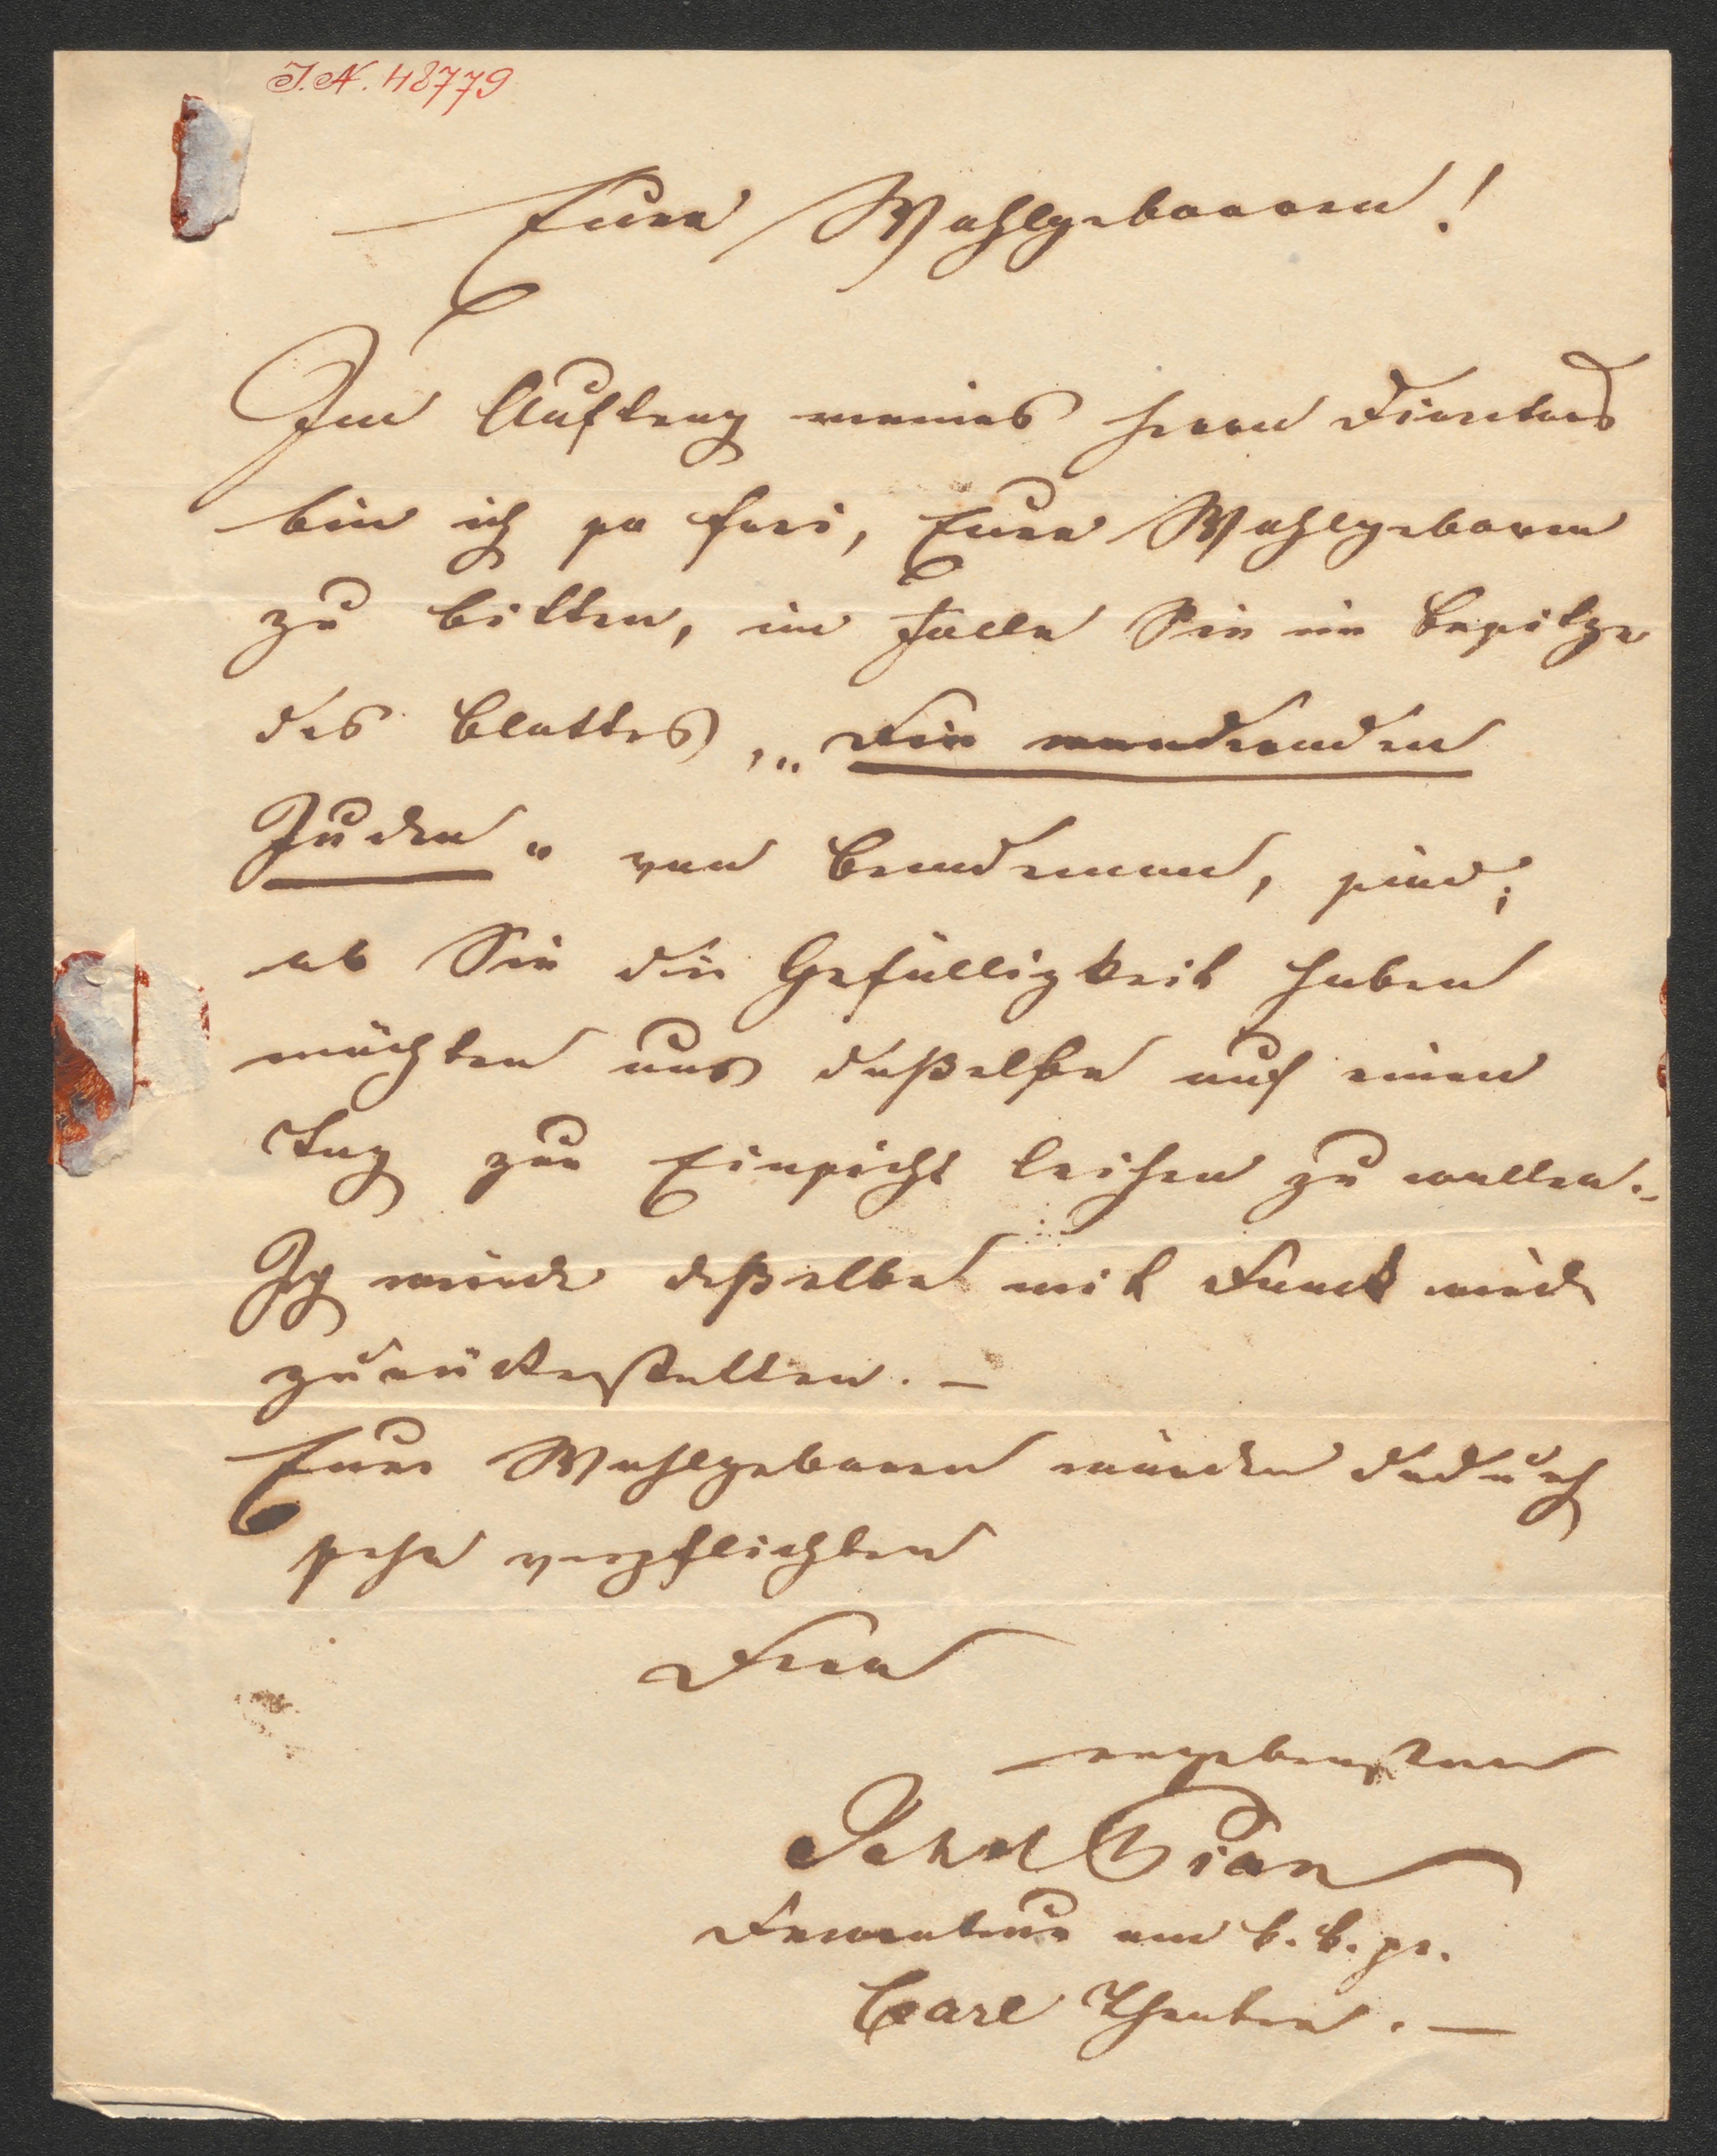 I.N. 48779
Euer Wohlgebooren!
Im Auftrag meines Herrn Direktors
bin ich so frei, Euer Wohlgeboren
zu bitten, im Falle Sie im Besitze
des Blattes, „Die
Juden" von Bendeman, sind;
ob Sie die Gefälligkeit haben
möchten uns daßelbe auf einen
Tag zur Einsicht leihen zu wollen.
Ich würde daßelbe mit Dank
zurückestellen. –
Euer Wohlgeboren würden dadurch
sehr verpflichten
Dero
ergebensten
am k. k. pr.
Carl Theater. —